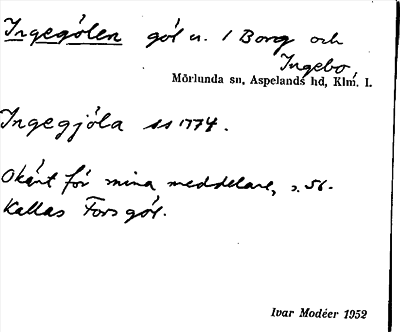 Ingegölen göl u. 1 Borg och
Ingebo,
Mörlunda sn, Aspelands hd, Klm. l.
Ingegjöla ss 1774.
Okänt för mina meddelare, s. 56.
Kallas Forsgöl.
Ivar Modéer 1952